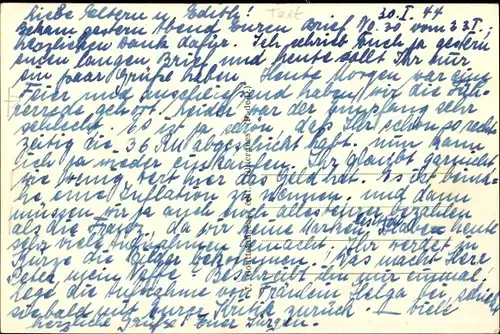 Liebe Eltern u. Edith! Text 30.I.44
bekam gestern Abend Euren Brief No. 30 vom 23.I.;
herzlichen Dank dafür. Ich schrieb Euch ja gestern
einen langen Brief und heute sollt Ihr nur
ein paar Grüße haben. Heute Morgen war eine
Feier und anschliessend haben wir die Füh-
rerrede gehört. Leider war der Empfang sehr
schlecht. Es ist ja schön, daß Ihr schon so recht-
zeitig die 36 RM abgeschickt habt. Nun kann
ich ja wieder einkaufen. Ihr glaubt garnicht
wie wenig wert hier das Geld hat. Es ist beinah-
he eine Inflation zu nennen. und dann
müssen wir ja auch noch alles teurer bezahlen
als die Franz. da wir keine Marken haben. heute
sehr viele Aufnahmen gemacht. Ihr werdet in
Kürze die Bilder bekommen! Was macht Herr
Peter mein Neffe. Beschreibt ihn mir einmal.
lege die Aufnahme von Fräulein Helga bei, schickt
sie bald mit Eurer Kritik zurück. Viele
herzliche Grüße! Euer Jürgen.